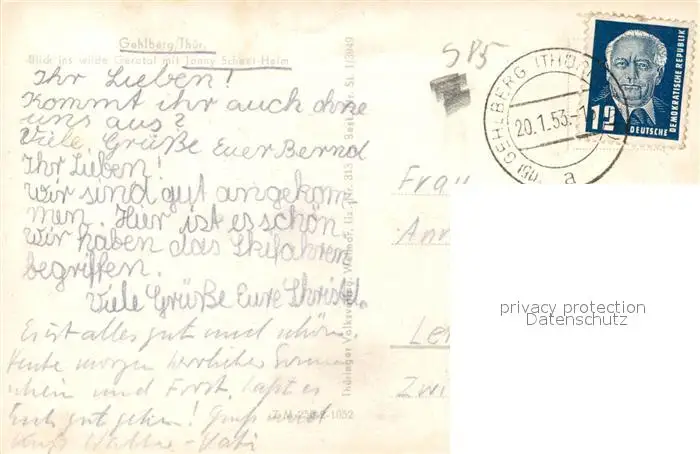 Gehlberg/Thür.
Blick ins wilde Geratal mit Jonny Scheer Heim
Ihr Lieben!
Kommt ihr auch ohne
uns aus?
Viele Grüße Euer Bernd
Ihr Lieben!
wir sind gut angekom
men. Hier ist es schön
wir haben das Skifahren
begriffen.
Viele Grüße Eure Christel.
Es ist alles gut und schön.
Heute morgen herrlicher Sonnen
schein und Frost. Laßt es
Euch gut gehen! Gruß und
Kuß
Z. M. 1052
Thüringer Volksverlag Weimar,
St. 11/3949
S 85
GEHLBERG (THÜR
20.1.53.-1
a
12
DEUTSCHE
DEMOKRATISCHE REPUBLIK
Frau
Ann
Le
Zwi
privacy protection
Datenschutz